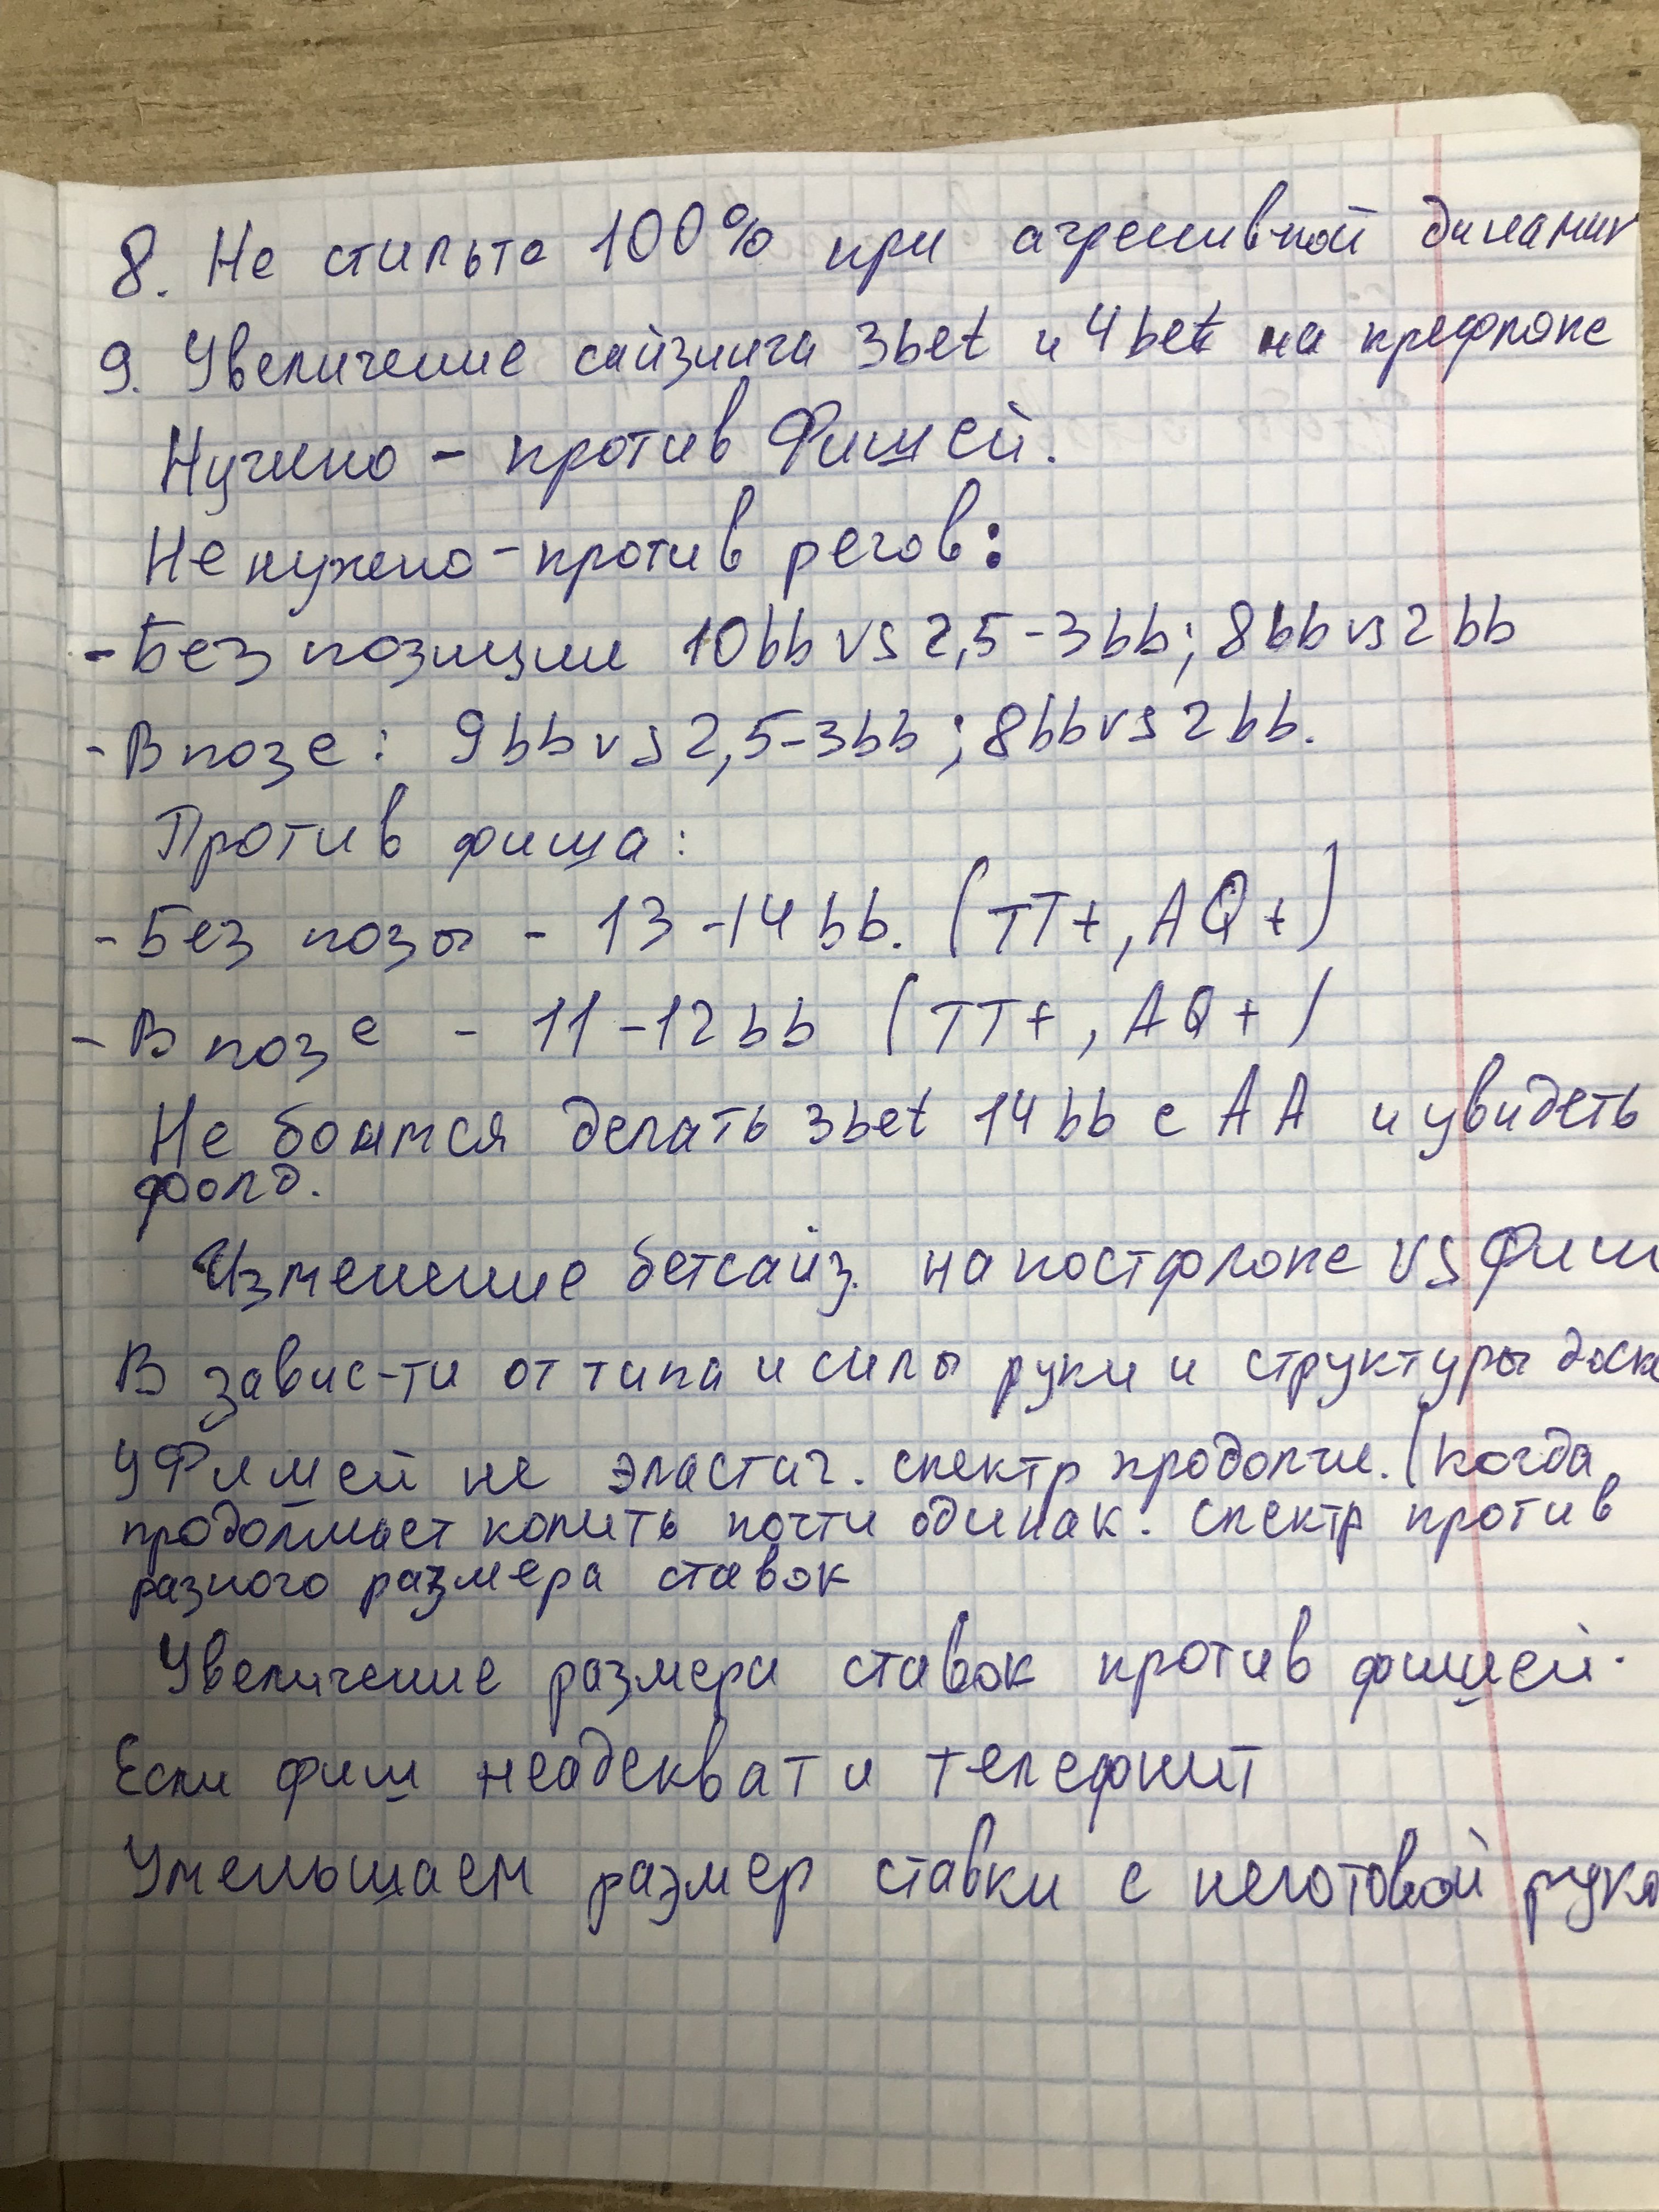 8. Не стильте 100% при агресивной динамик
9. Увеличение сайзинга 3bet и 4bet на префлопе
Нужно - против Фишей.
Не нужно - против регов:
- Без позиции 10bb vs 2,5-3bb; 8bb vs 2bb
- В позе: 9bb vs 2,5-3bb; 8bb vs 2bb.
Против фиша:
- Без позы - 13-14bb. (TT+, AQ+)
- В позе - 11-12bb (TT+, AQ+)
Не боимся делать 3bet 14bb с AA и увидеть
фолд.
Изменение бетсайз. на постфлопе vs Фиш
В завис-ти от типа и силы руки и структуры доск
У Фишей не эластич. спектр продолж. (когда
продолжает колить почти одинак. спектр против
разного размера ставок
Увеличение размера ставок против фишей.
Если фиш неадекват и телефонит
Уменьшаем размер ставки с неготовой руко